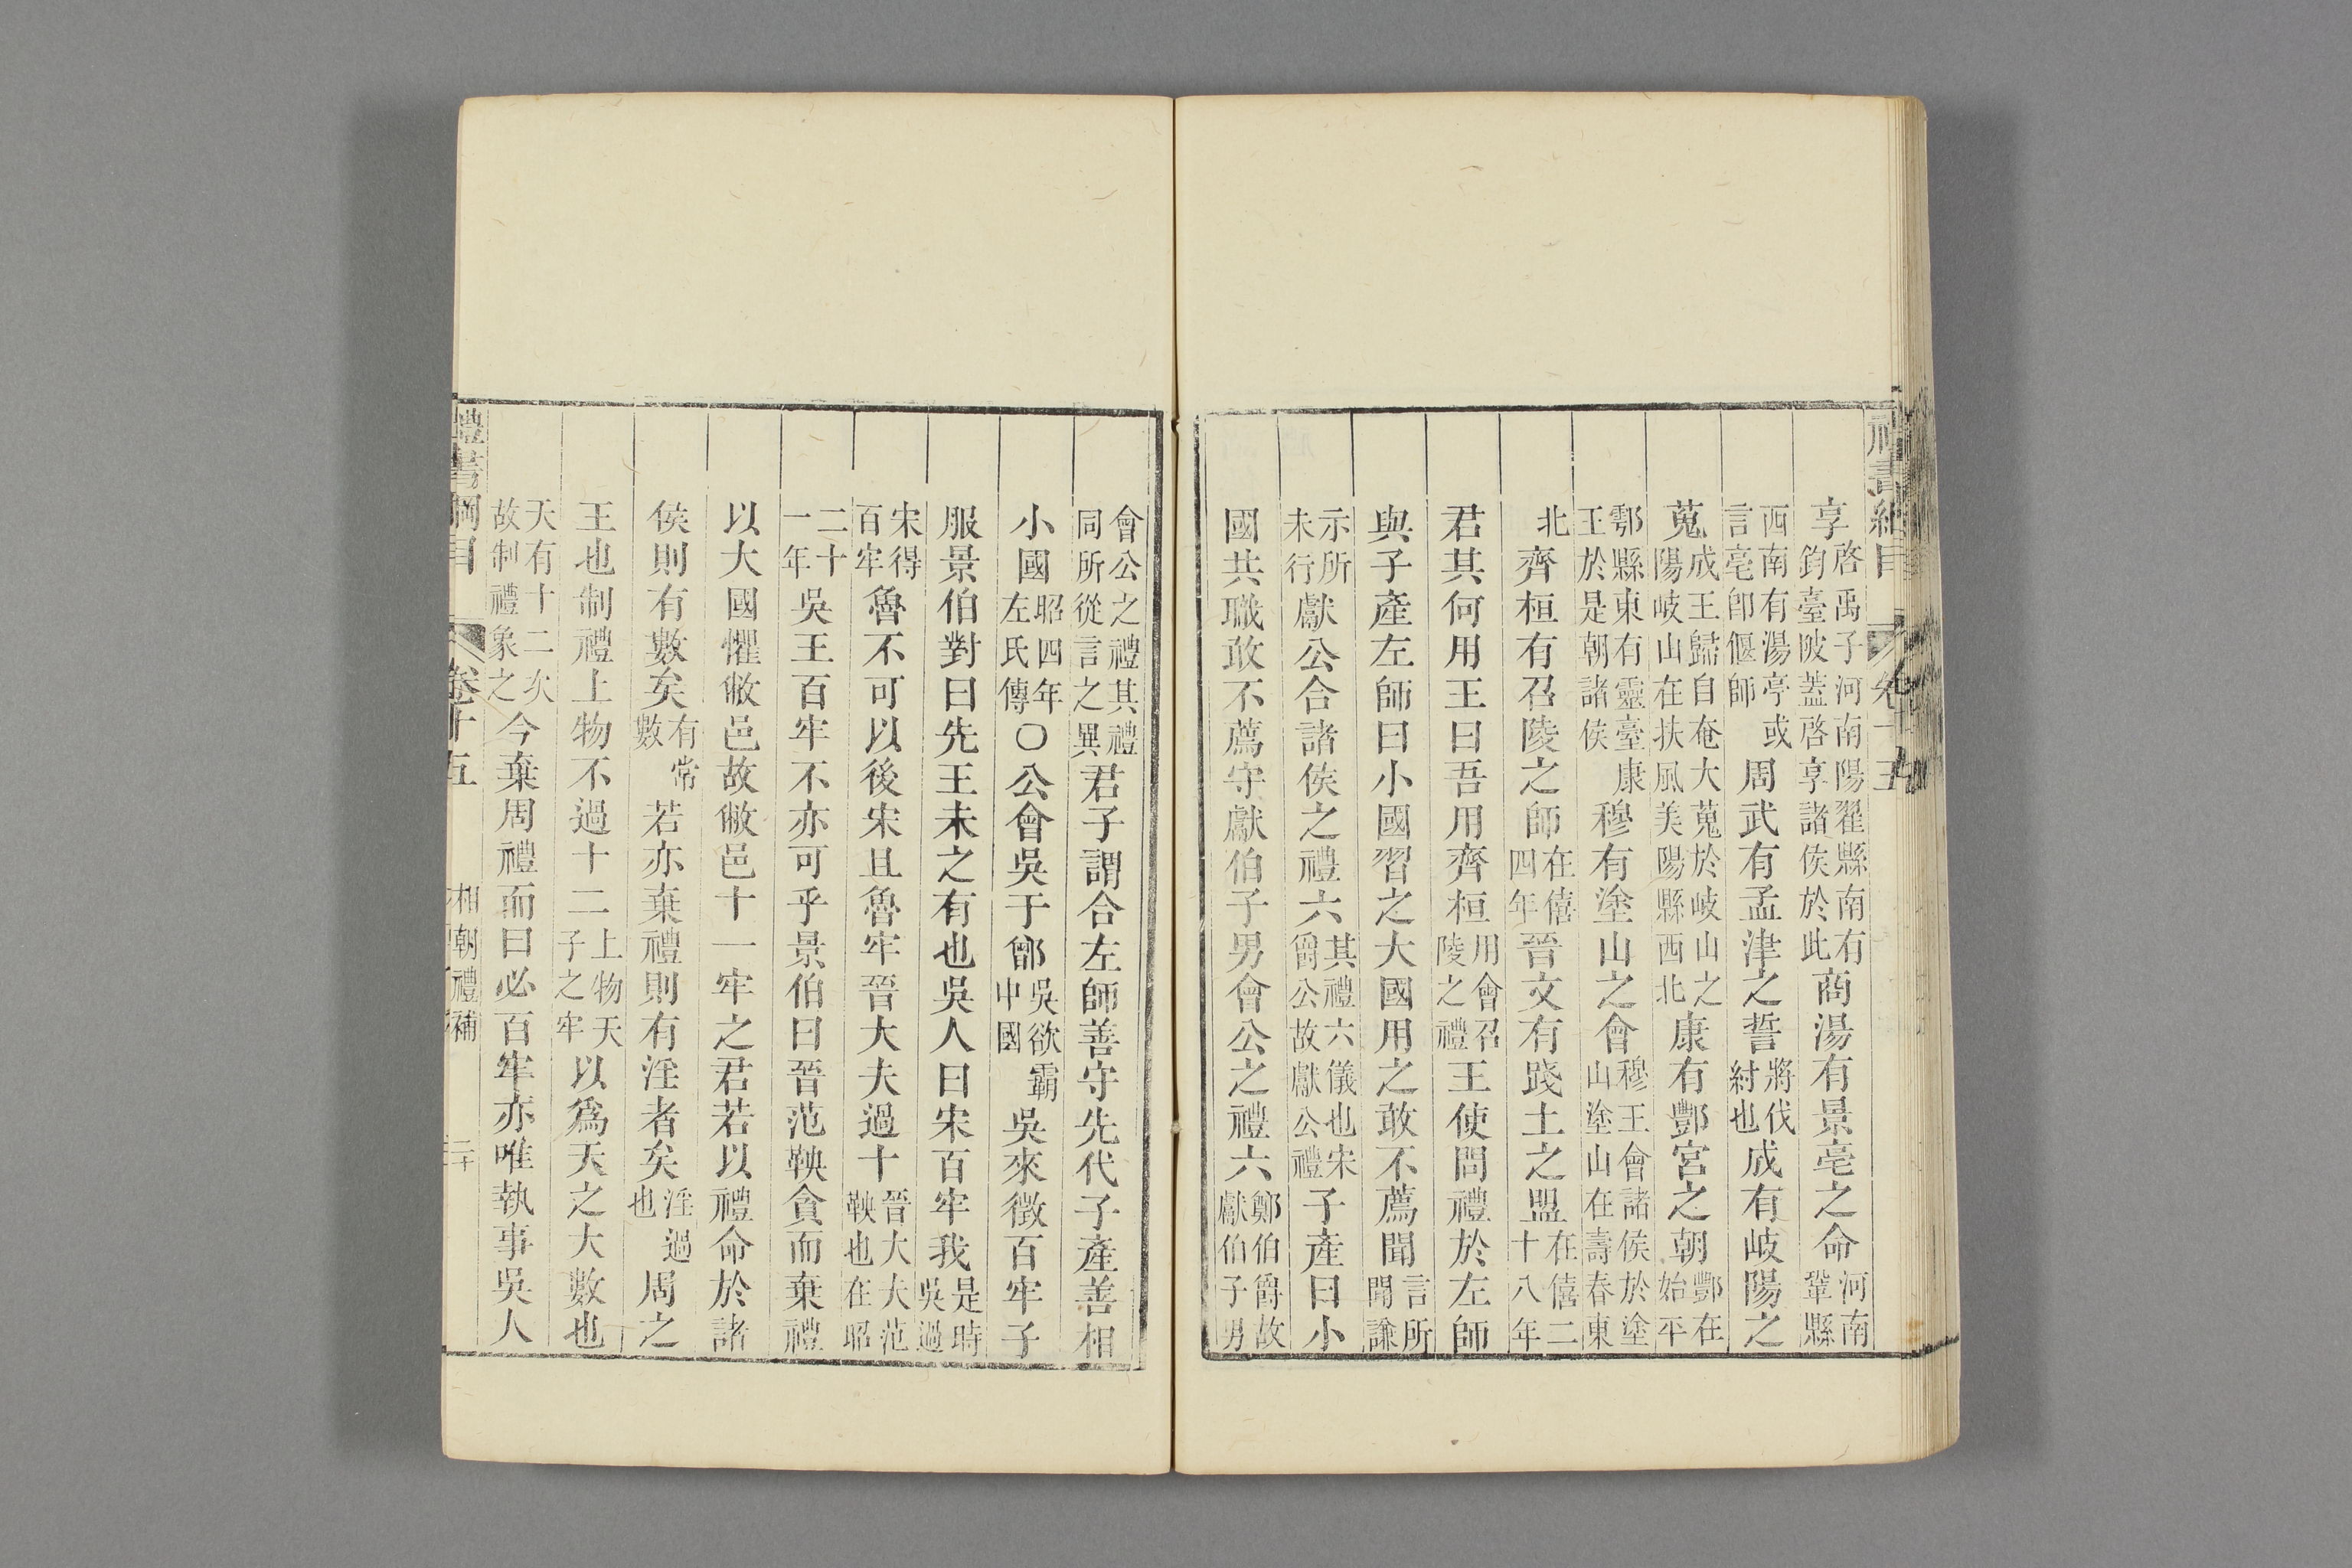 禮書綱目 卷十五
享啓禹子河南陽翟縣南有鈞臺陂蓋啓享諸侯於此商湯有景亳之命河南鞏縣
西南有湯亭或言亳卽偃師周武有孟津之誓將伐紂也成有岐陽之
蒐成王歸自奄大蒐於岐山之陽岐山在扶風美陽縣西北康有酆宮之朝酆在始平
鄠縣東有靈臺康王於是朝諸侯穆有塗山之會穆王會諸侯於塗山塗山在壽春東
北齊桓有召陵之師在僖四年晉文有踐土之盟在僖二十八年
君其何用王曰吾用齊桓用會召陵之禮王使問禮於左師
與子產左師曰小國習之大國用之敢不薦聞言所聞謙
示所未行獻公合諸侯之禮六其禮六儀也宋爵公故獻公禮子產曰小
國共職敢不薦守獻伯子男會公之禮六鄭伯爵故獻伯子男
會公之禮其禮同所從言之異君子謂合左師善守先代子產善相
小國昭四年左氏傳〇公會吳于鄫吳欲霸中國吳來徵百牢子
服景伯對曰先王未之有也吳人曰宋百牢我是時吳過
宋得百牢魯不可以後宋且魯牢晉大夫過十晉大夫范鞅也在昭
二十一年吳王百牢不亦可乎景伯曰晉范鞅貪而棄禮
以大國懼敝邑故敝邑十一牢之君若以禮命於諸
侯則有數矣有常數若亦棄禮則有淫者矣淫過也周之
王也制禮上物不過十二上物天子之牢以爲天之大數也
天有十二次故制禮象之今棄周禮而曰必百牢亦唯執事吳人
禮書綱目 卷十五 相朝禮補 二十